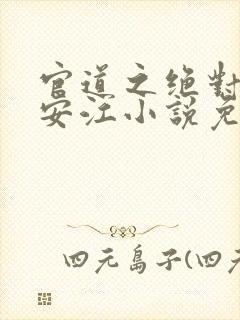 官道之绝對
安江小説免
四元島子(四元